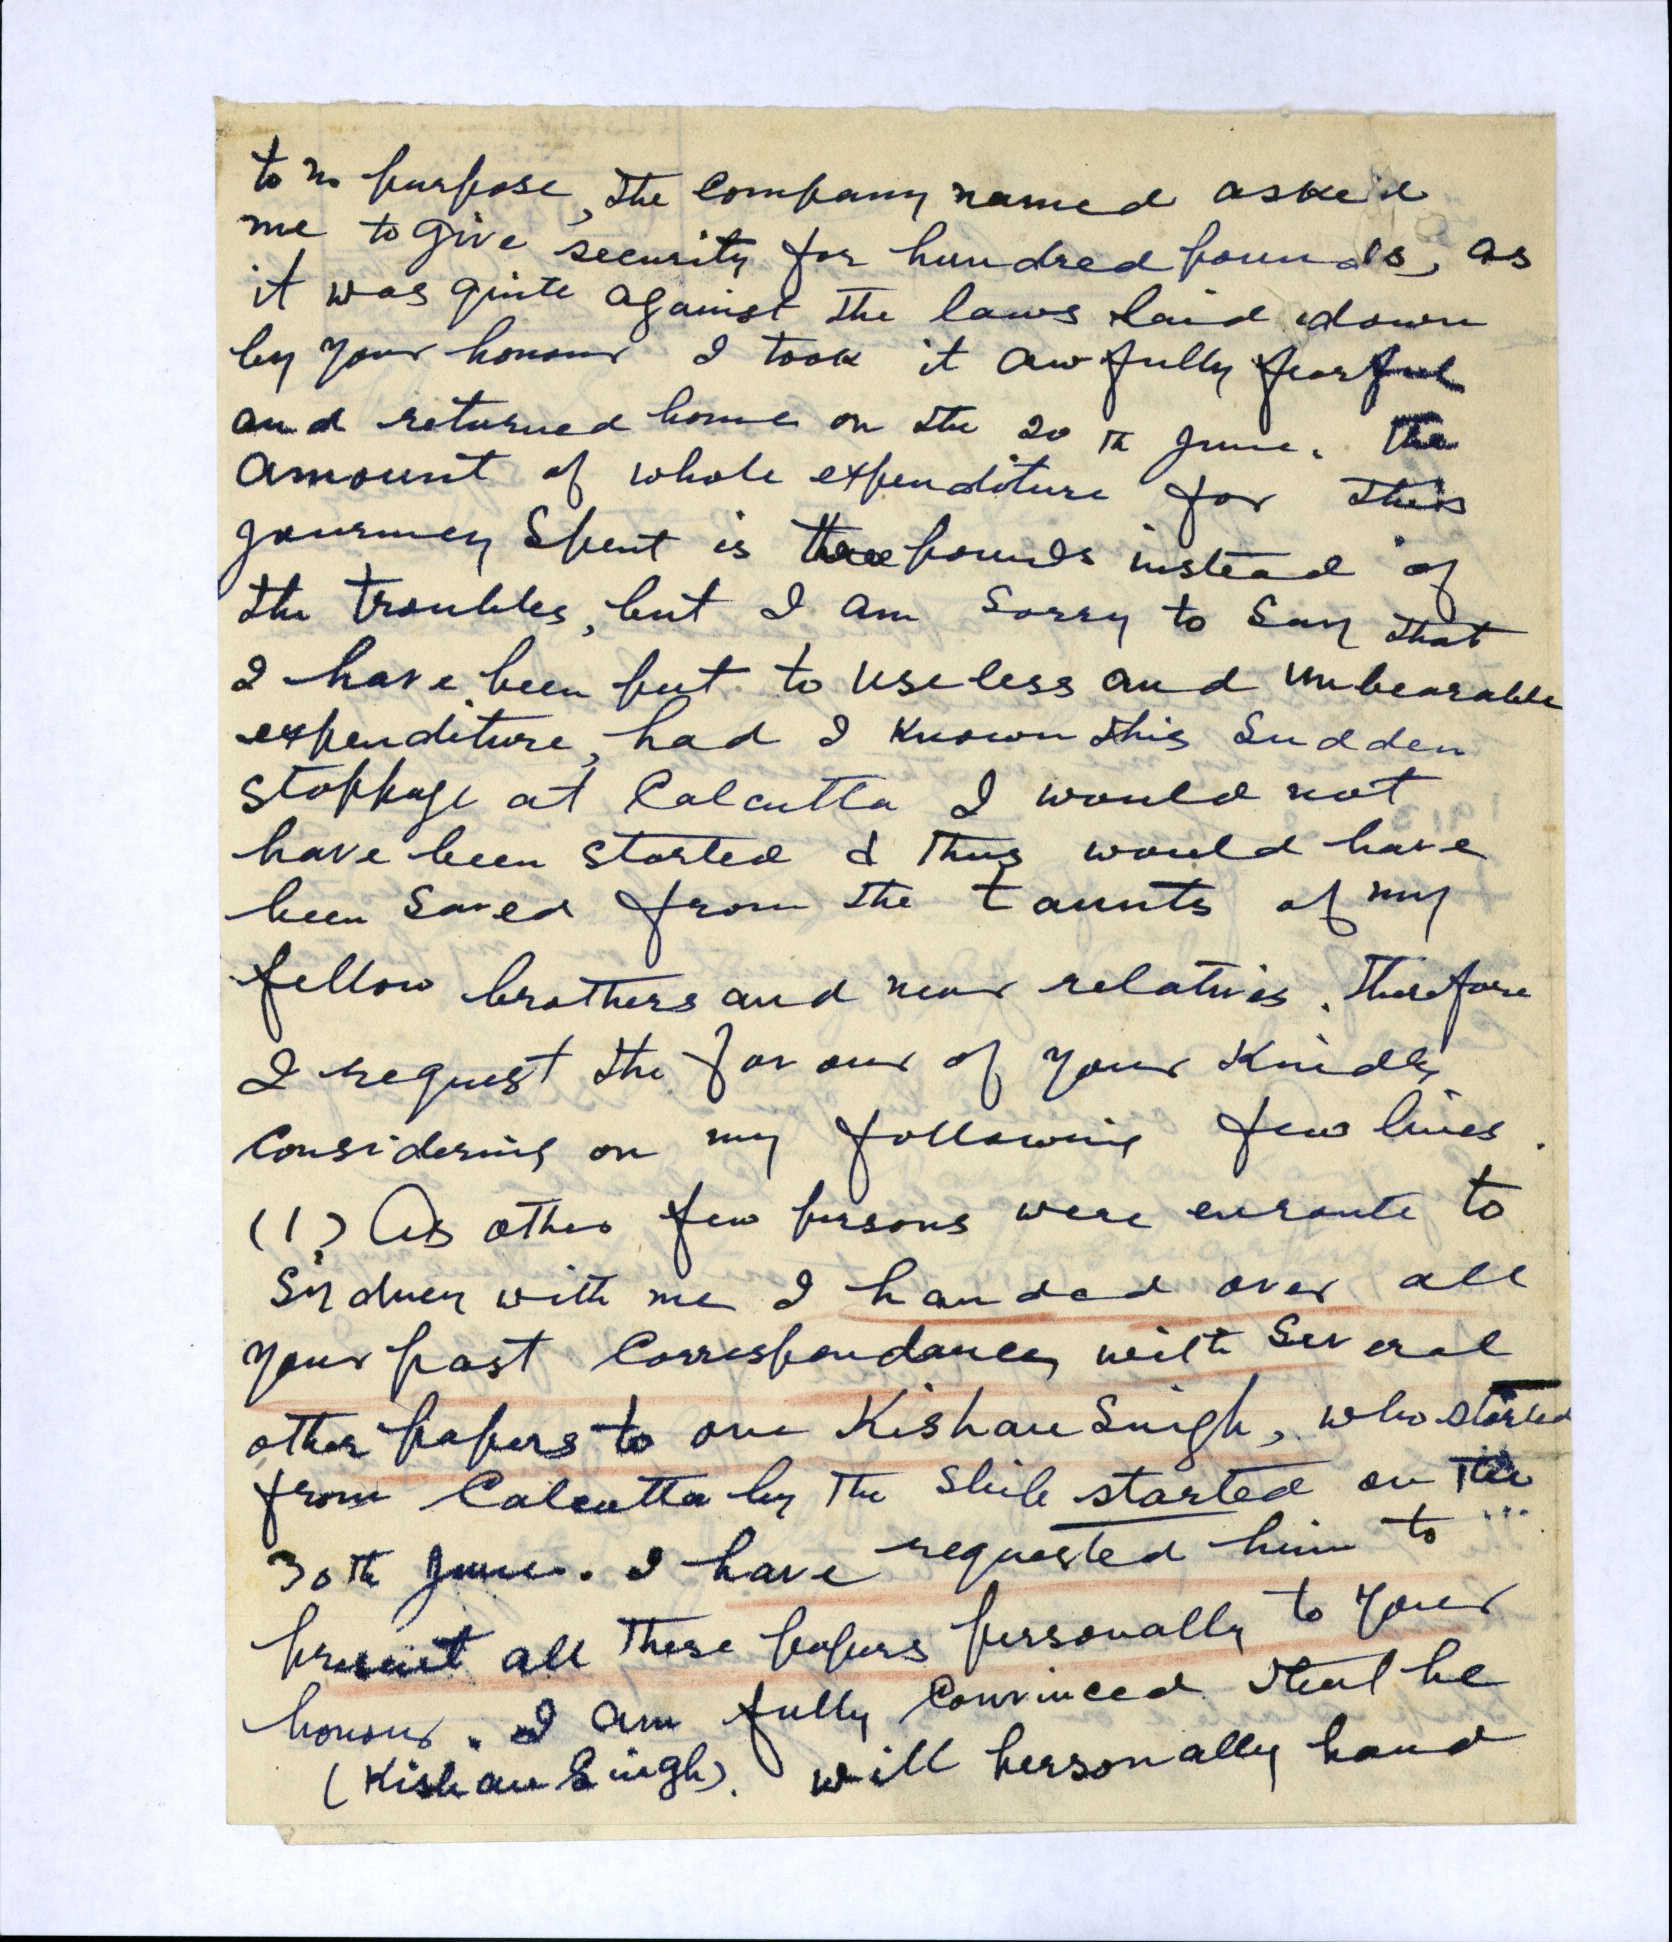 to no purpose, the Company named asked
me to give security for hundred pounds, as
it was quite against the laws laid down
by your honour I took it awfully fearful
and returned home on the 20th June. The
amount of whole expenditure for this
journey Spent is three pounds instead of
the troubles, but I am Sorry to Say that
I have been put to useless and unbearable
expenditure, had I known this Sudden
stoppage at Calcutta I would not
have been started & thus would have
been Saved from the taunts of my
fellow brothers and near relatives. Therefore
I request the favour of your Kindly
Considering on my following few lines.
(1) As other few persons were enroute to
Sydney with me I handed over all
your past Correspondance, with Several
other papers to one Kishan Singh, who started
from Calcutta by the Ship started on the
30th June. I have requested him to
present all these papers personally to your
honour. I am fully Convinced that he
(Kishan Singh). will personally hand